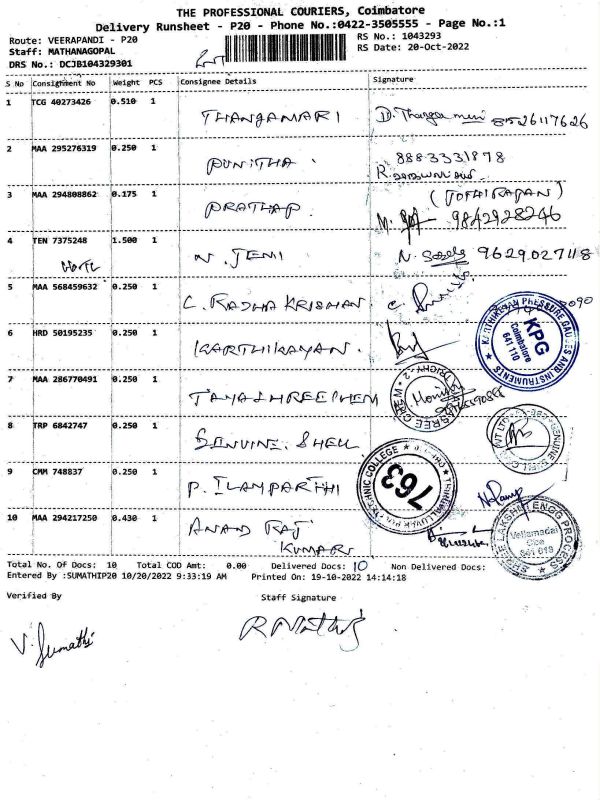 THE PROFESSIONAL COURIERS, Coimbatore
Delivery Runsheet - P20 - Phone No.:0422-3505555 - Page No.:1
Route: VEERAPANDI - P20
RS No.: 1043293
Staff: MATHANAGOPAL
RS Date: 20-Oct-2022
DRS No.: DCJB104329301
S No Consignment No Weight PCS Consignee Details Signature
1 TCG 40273426 0.510 1 THANGAMARI D. Thangamari 8526117626
2 MAA 295276319 0.250 1 PUNITHA. 8883331878
R.
3 MAA 294808862 0.175 1 PRATHAP. (JOTHIRAJAN)
M. 9842928246
4 TEN 7375248 1.500 1 N. JEMI N. 9629027118
5 MAA 568459632 0.250 1 C. RADHA KRISHNAN. C.
6 HRD 50195235 0.250 1 KARTHIKAYAN.
KARTHIKEYAN PRESSURE GAUGES AND INSTRUMENTS
KPG
Coimbatore
641 110
7 MAA 286770491 0.250 1 JAYASHREECHEM
8 TRP 6842747 0.250 1 GENUINE. SHELL
9 CMM 748837 0.250 1 P. ILAMPARTHI
763
10 MAA 294217250 0.430 1 ANAND RAJ
KUMAR
SHREE LAKSHMI TENGO PROCESS
Vellamadai
Cbe
641 019
Total No. Of Docs: 10 Total COD Amt: 0.00 Delivered Docs: 10 Non Delivered Docs:
Entered By :SUMATHIP20 10/20/2022 9:33:19 AM Printed On: 19-10-2022 14:14:18
Verified By Staff Signature
V. Sumathi